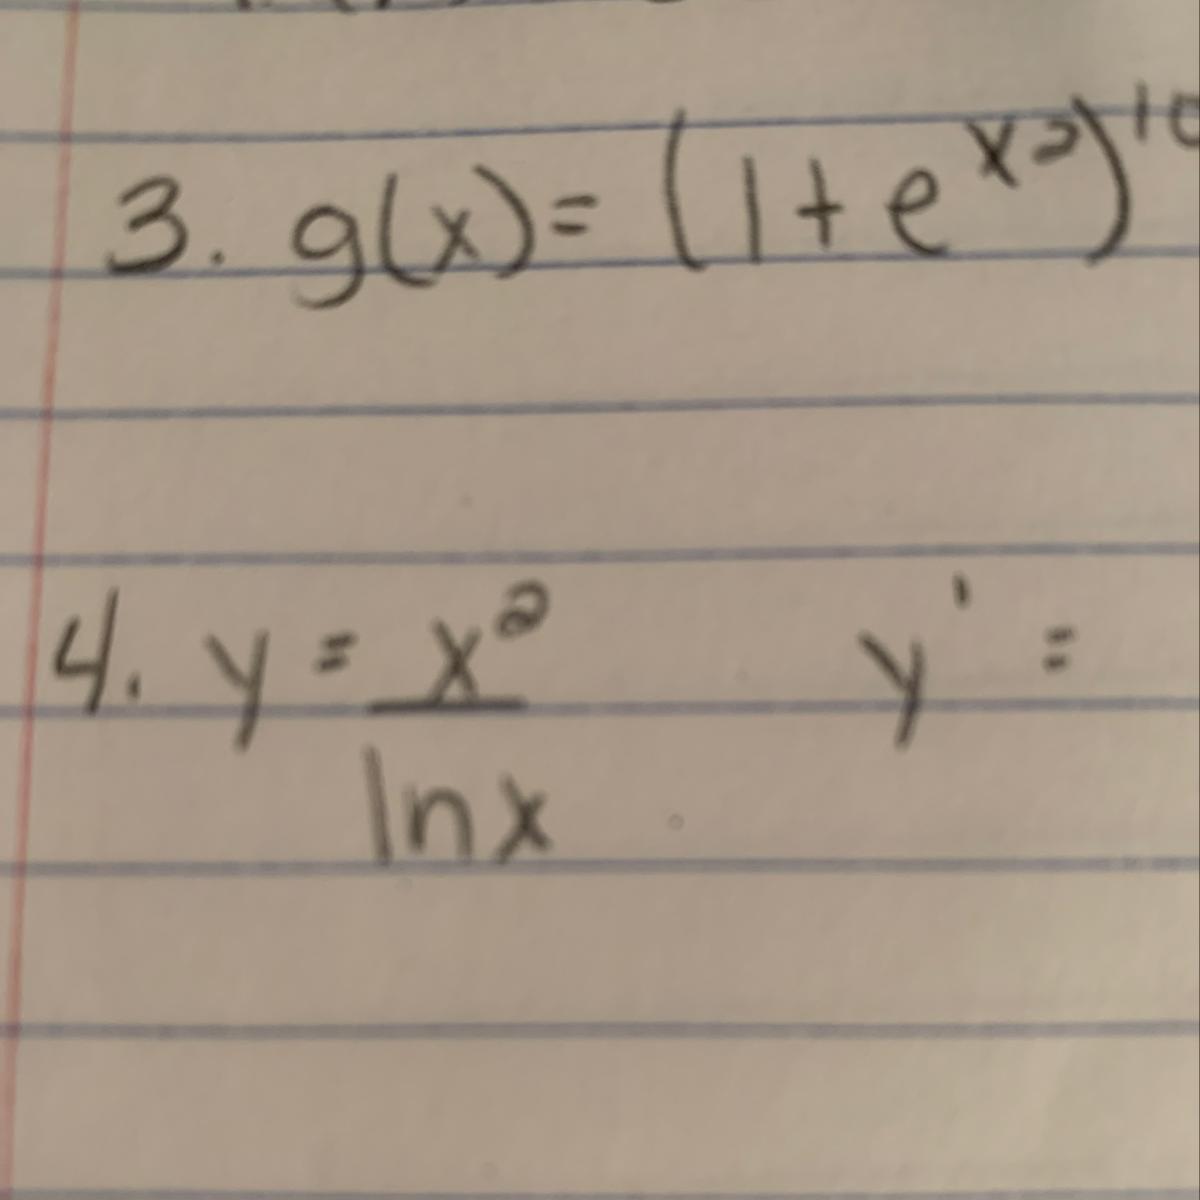 3. g(x) = (1 + e^x²)^10
4. y = x²/ln x    y' =